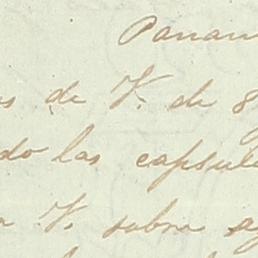 Panam
s de V. de 8
do las capsul
V. sobra